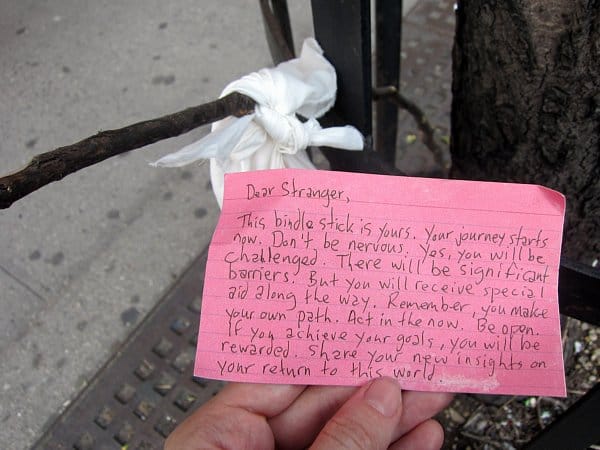 Dear Stranger,
This bindle stick is yours. Your journey starts
now. Don't be nervous. Yes, you will be
challenged. There will be significant
barriers. But you will receive special
aid along the way. Remember, you make
your own path. Act in the now. Be open.
If you achieve your goals, you will be
rewarded. Share your new insights on
your return to this world